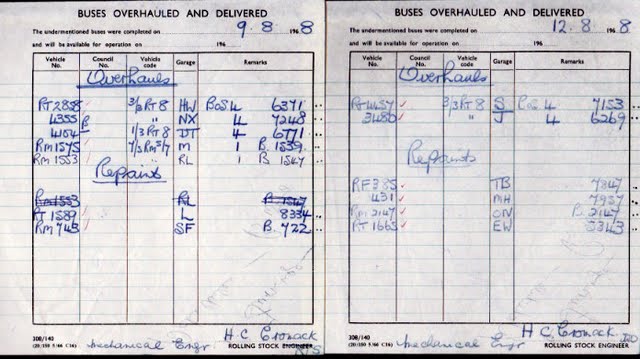 BUSES OVERHAULED AND DELIVERED
The undermentioned buses were completed on 9.8. 1968
and will be available for operation on 196
Vehicle No. Council No. Vehicle code Garage Remarks
Overhauls
RT 2858 3/3 RT 8 HW BOS 4 6371
4355 " NX 4 7248
4104 1/3 RT 8 4 6771
RM 1575 M 1 B. 1539
RM 1553 " RL 1 B 1547
Repaints
RM 1553 RL B 1547
RT 1589 L 8334
RM 743 SF B. 722
308/140
Mechanical Engr H C Cronack
ROLLING STOCK ENGINEER
BUSES OVERHAULED AND DELIVERED
The undermentioned buses were completed on 12.8. 1968
and will be available for operation on 196
Vehicle No. Council No. Vehicle code Garage Remarks
Overhauls
RT 4457 3/3 RT 8 S 4 7153
3480 " J 4 6269
Repaints
RF 385 TB 7847
431 MH 7957
RM 2147 ON B. 2147
RT 1665 EW 5343
308/140
Mechanical Engr H C Cronack
ROLLING STOCK ENGINEER